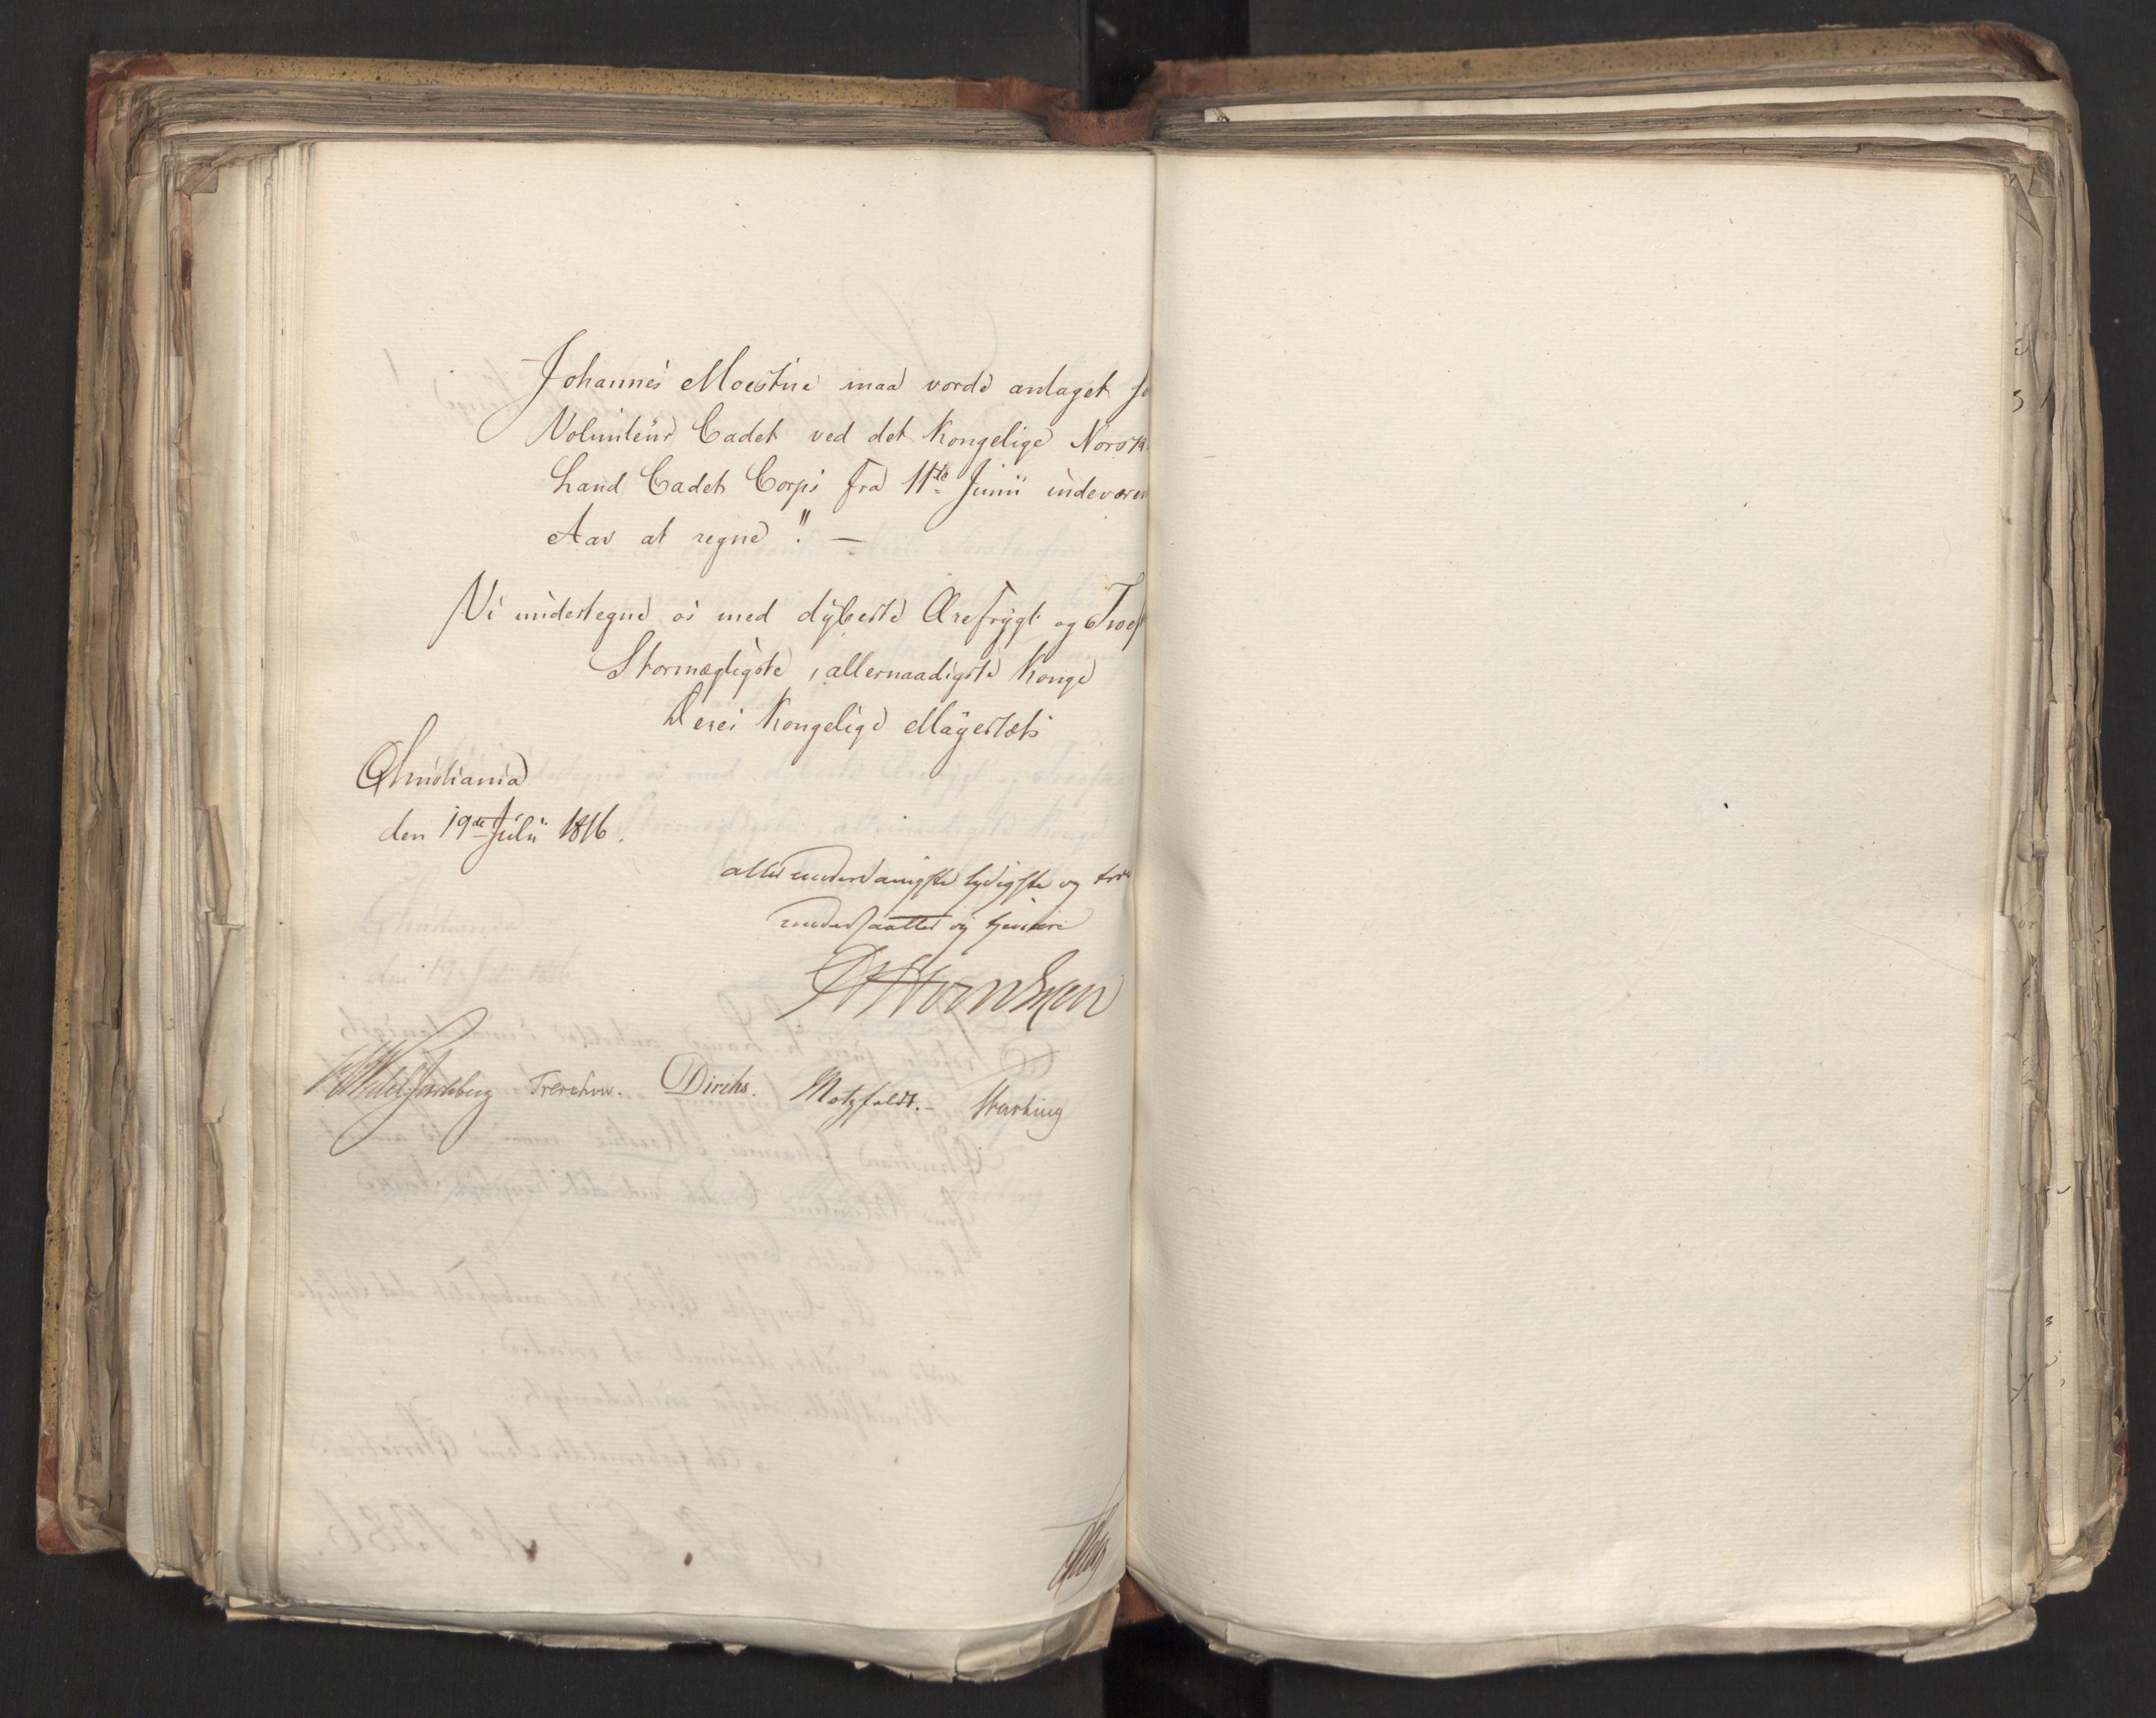 Johannes Moestue maa vorde antaget so
Volunteur Cadet ved det Kongelige Norsk
Land Cadet Corps fra 11te Junii indeværen
Aar at regne". —
Vi undertegne os med dybeste Ærefrygt og Troes
Stormægtigste, allernaadigste Konge
Deres Kongelige Mayestæts
Christiania
den 19de Julii 1816.
allerunderdanigste lydigste og tro
undersaatter og tjenere
Wedel Jarlsberg Treschow. Diriks. Motzfeldt.